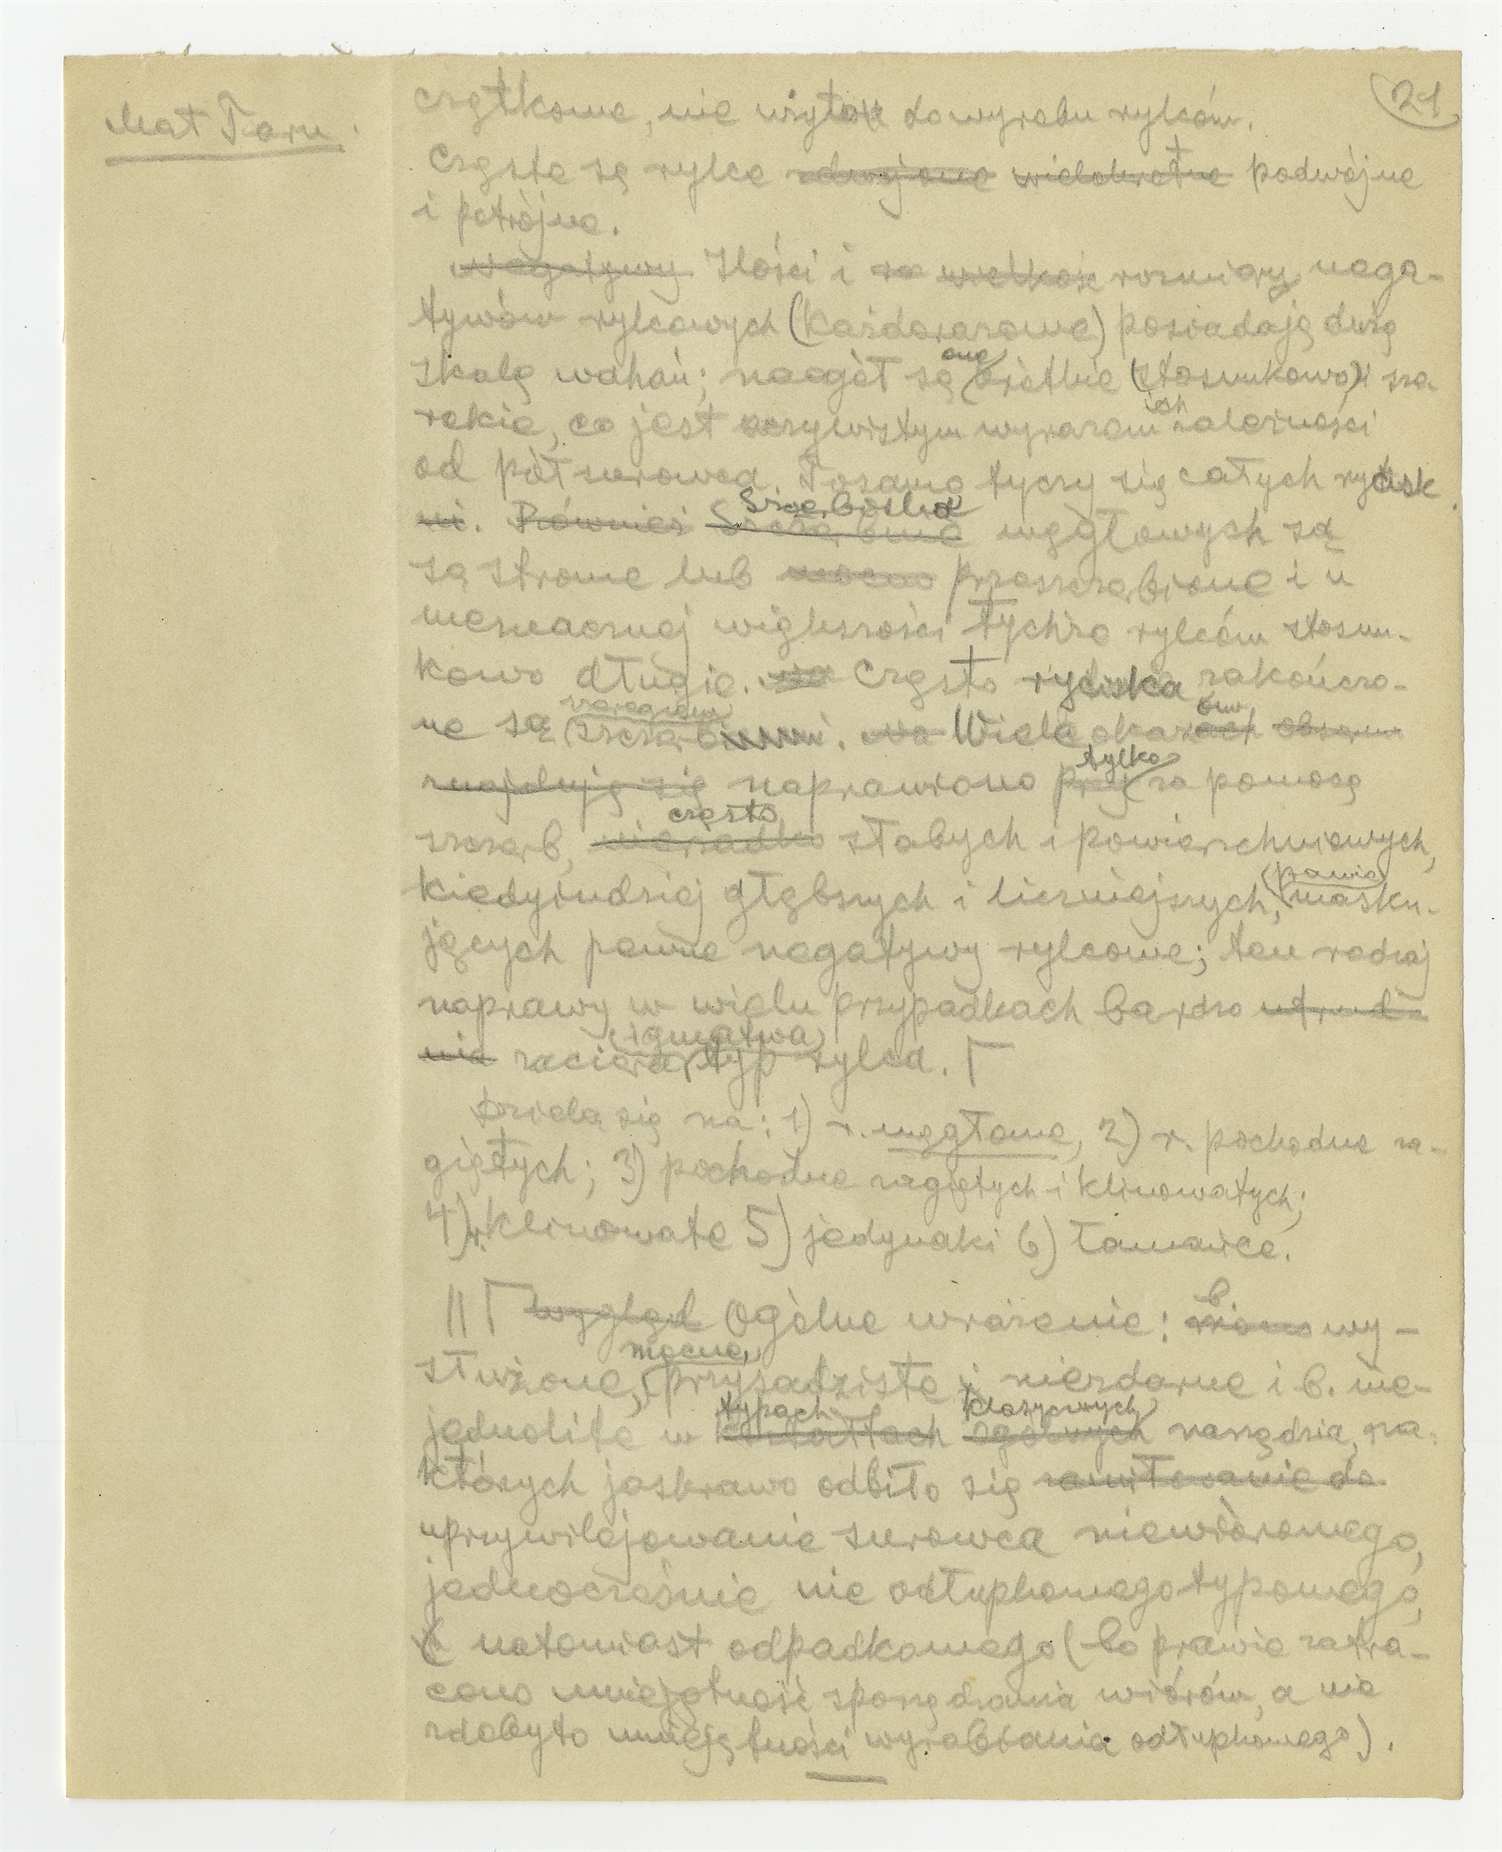 Mat Tarn.
21
cząstkowe, nie użyto do wyrobu rylców.
Częste są rylce zdwojone wielokrotne podwójne
i potrójne.
Negatywy Ilości i wielkość rozmiary nega-
tywów rylcowych (każdorazowe) posiadają dużą
skalę wahań; naogół są one świetnie (stosunkowo) sze-
rokie, co jest oczywistym wyrazem ich zależności
od półsurowca. Tosamo tyczy się całych rydzsk
ni. Również Szczerbiska węgłowych są
są strome lub mocno przeszczerbione i u
nieznacznej większości tychże rylców stosun-
kowo długie. Często rydiska zakończo-
ne są szeregiem szczerbinami. Wiele okazów obserw
znajduje się naprawiono tylko za pomocą
szczerb, nierzadko często słabych i powierzchniowych,
kiedyindziej głębszych i liczniejszych, (prawie) masku-
jących pewne negatywy rylcowe; ten rodzaj
naprawy w wielu przypadkach bardzo utrud-
nia zaciera i gmatwa typ rylca. Γ
Dzielą się na: 1) r. węgłowe, 2) r. pochodne za-
giętych; 3) pochodne zagiętych i klinowatych;
4) r. klinowate 5) jedynaki 6) łamańce.
|| Γ Wygląd Ogólne wrażenie: b. wy-
służone, mocne, przysadziste i niezdarne i b. nie-
jednolite w kształtach typach ogólnych klasycznych narzędzia, na
których jaskrawo odbiło się zamiłowanie do
uprzywilejowanie surowca niewiórowego,
jednocześnie nie odłupkowego typowego,
natomiast odpadkowego (bo prawie zatra-
cono umiejętność sporządzania wiórów, a nie
zdobyto umiejętności wyrabiania odłupkowego).